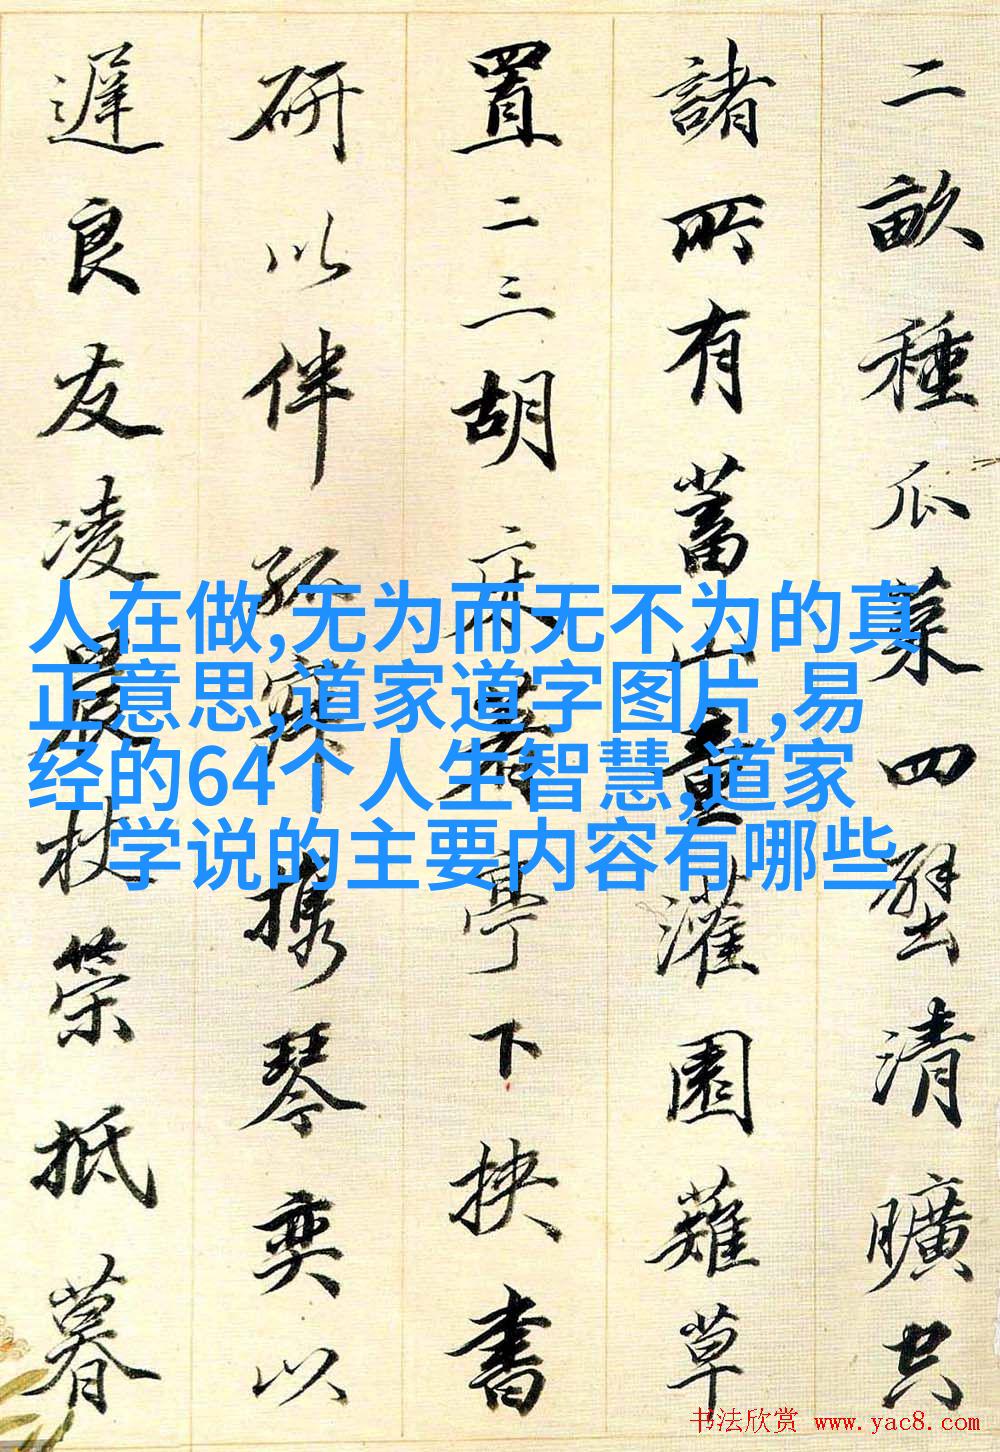 二畝種瓜菜四壁清曠空
諸所有蓄山童灌園薙草
置二三胡床著亭下挾書
研以伴孤寂携琴奕以
遲良友凌晨杖策抵暮
人在做,无为而无不为的真
正意思,道家道字图片,易
经的64个人生智慧,道家
学说的主要内容有哪些
书法欣赏 www.yac8.com